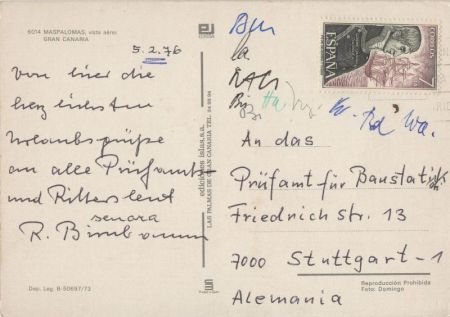 6014 MASPALOMAS, vista aérea
GRAN CANARIA
5.2.76
Von hier die
herzlichsten
Urlaubsgrüße
an alle Prüfamts
und Ritters
senora
R. Birnbaum
Dep. Leg. B-50697/73
ediciones islas, s.a.
LAS PALMAS DE GRAN CANARIA TEL.
ESPAÑA
CORREOS
7
An das
Prüfamt für Baustatik
Friedrichstr. 13
7000 Stuttgart-1
Alemania
Reproducción Prohibida
Foto: Domingo